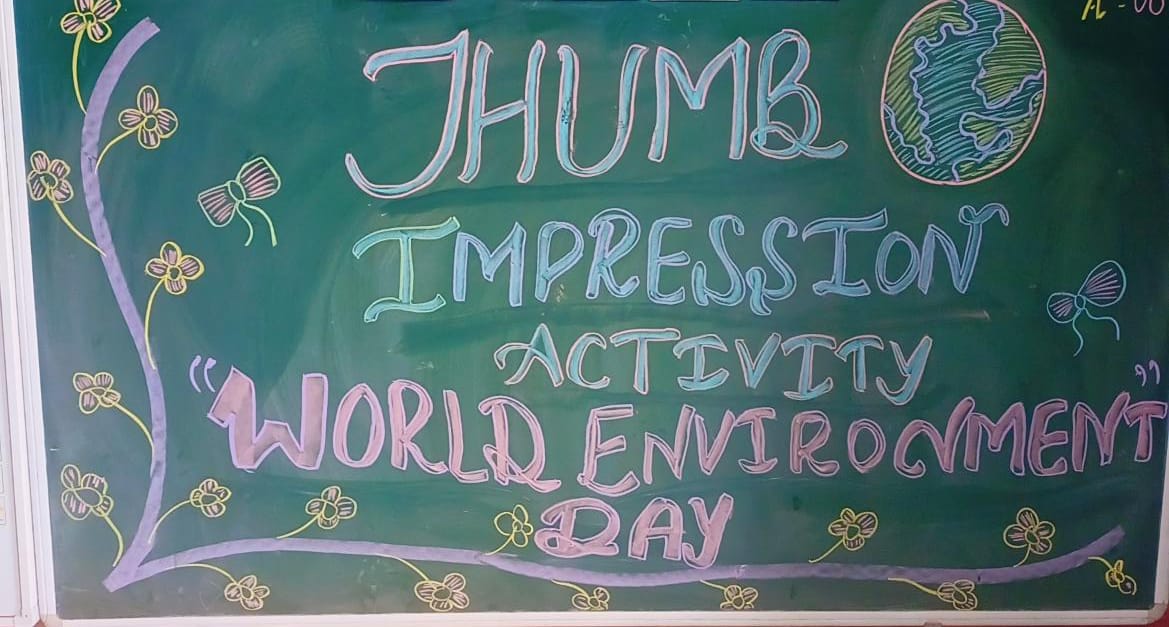 THUMB
IMPRESSION
ACTIVITY
"WORLD ENVIRONMENT"
DAY